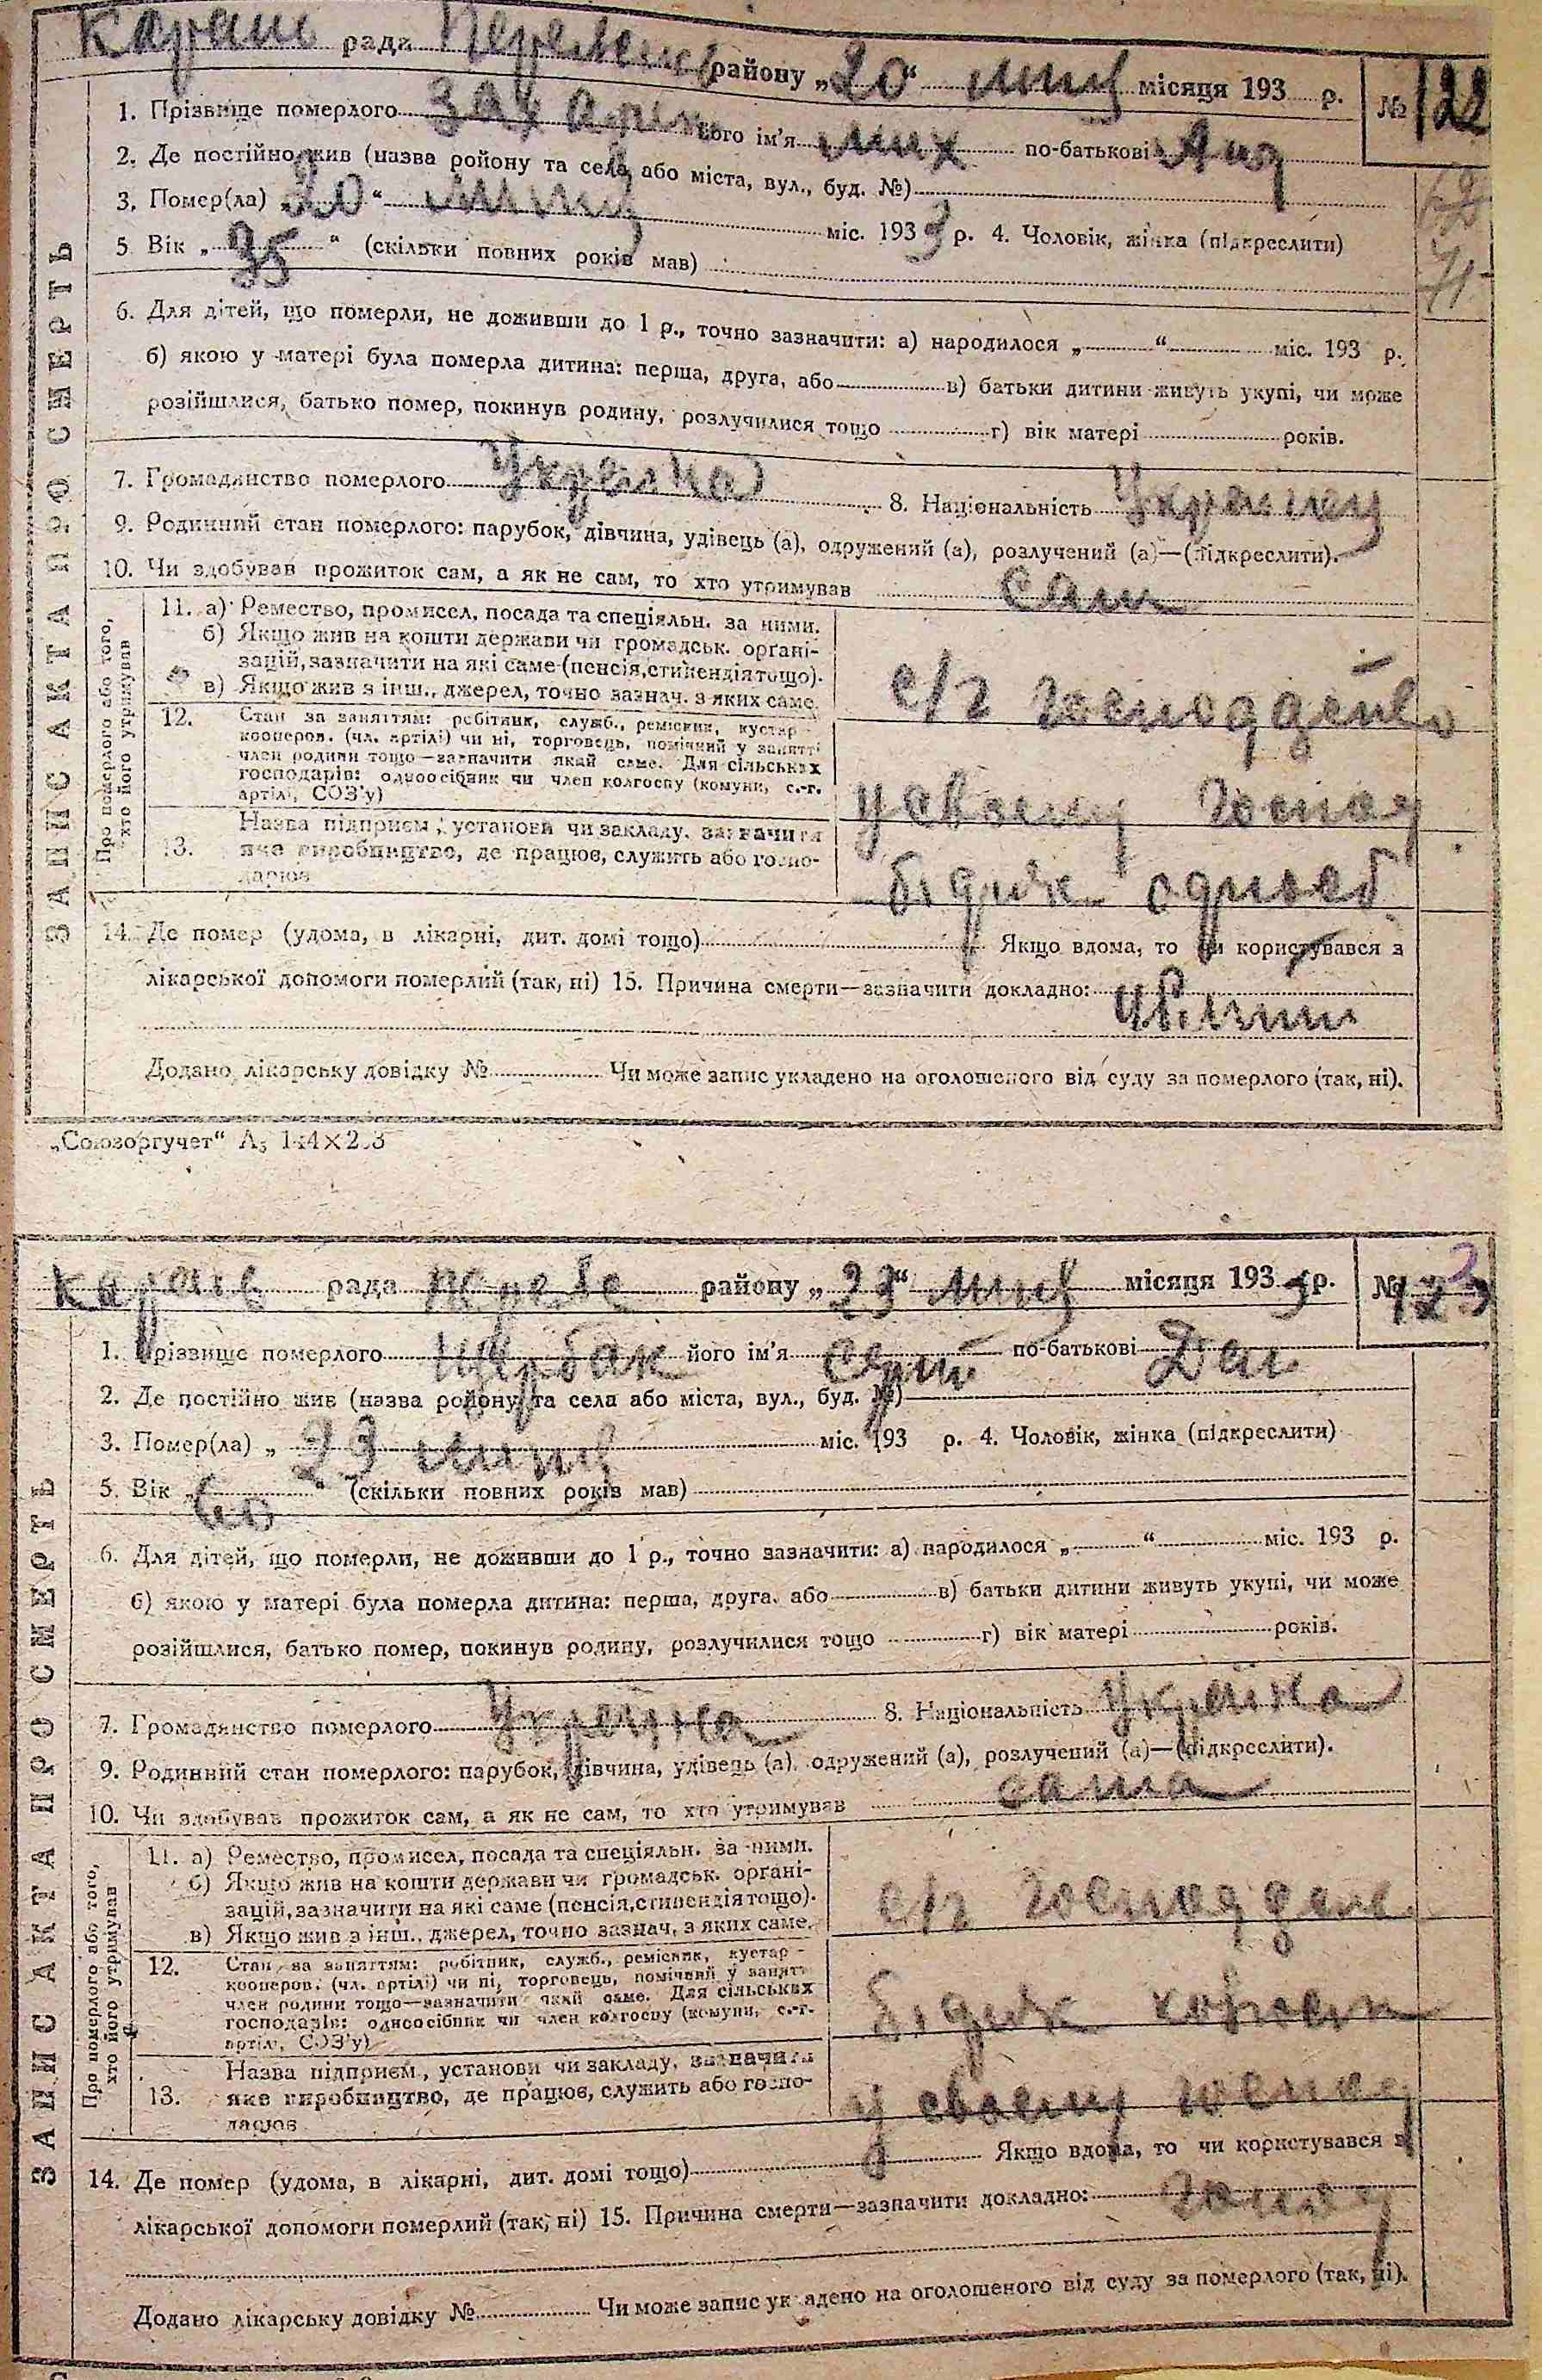 рада району „20“ місяця 193 р. № 122
1. Прізвище померлого його ім'я Мих по-батькові
2. Де постійно жив (назва ройону та села або міста, вул., буд. №)
3. Помер(ла) „20“ міс. 1933 р. 4. Чоловік, жінка (підкреслити)
5 Вік „35“ (скільки повних років мав)
6. Для дітей, що померли, не доживши до 1 р., точно зазначити: а) народилося „ “ міс. 193 р.
б) якою у матері була померла дитина: перша, друга, або в) батьки дитини живуть укупі, чи може
розійшлися, батько помер, покинув родину, розлучилися тощо г) вік матері років.
7. Громадянство померлого 8. Національність
9. Родинний стан померлого: парубок, дівчина, удівець (а), одружений (а), розлучений (а)—(підкреслити).
10. Чи здобував прожиток сам, а як не сам, то хто утримував Сам
ЗАПИС АКТА ПРО СМЕРТЬ
Про померлого або того, хто його утримував
11. а) Ремество, промисел, посада та спеціяльн. за ними.
б) Якщо жив на кошти держави чи громадськ. органі-
зацій, зазначити на які саме (пенсія, стипендія тощо).
в) Якщо жив з інш., джерел, точно зазнач. з яких саме.
с/г
12. Стан за заняттям: робітник, служб., ремісник, кустар -
кооперов. (чл. артілі) чи ні, торговець, помічний у занятті
член родини тощо—зазначити який саме. Для сільських
господарів: одноосібник чи член колгоспу (комуни, с.-г.
артілі, СОЗ'у)
у своєму господ
13. Назва підприєм., установи чи закладу, зазначити
яке виробництво, де працює, служить або госпо-
дарює
бідняк одноос
14. Де помер (удома, в лікарні, дит. домі тощо) Якщо вдома, то чи користувався з
лікарської допомоги померлий (так, ні) 15. Причина смерти—зазначити докладно:
Додано лікарську довідку № Чи може запис укладено на оголошеного від суду за померлого (так, ні).
„Союзоргучет“ А5 144×203
рада району „23“ місяця 1933 р. № 123
1. Прізвище померлого Щербак його ім'я по-батькові Дан
2. Де постійно жив (назва ройону та села або міста, вул., буд. №)
3. Помер(ла) „ 23 міс. 193 р. 4. Чоловік, жінка (підкреслити)
5. Вік „60“ (скільки повних років мав)
6. Для дітей, що померли, не доживши до 1 р., точно зазначити: а) народилося „ “ міс. 193 р.
б) якою у матері була померла дитина: перша, друга, або в) батьки дитини живуть укупі, чи може
розійшлися, батько помер, покинув родину, розлучилися тощо г) вік матері років.
7. Громадянство померлого Україна 8. Національність Україна
9. Родинний стан померлого: парубок, дівчина, удівець (а), одружений (а), розлучений (а)—(підкреслити).
10. Чи здобував прожиток сам, а як не сам, то хто утримував сама
ЗАПИС АКТА ПРО СМЕРТЬ
Про померлого або того, хто його утримував
11. а) Ремество, промисел, посада та спеціяльн. за ними.
б) Якщо жив на кошти держави чи громадськ. органі-
зацій, зазначити на які саме (пенсія, стипендія тощо).
в) Якщо жив з інш., джерел, точно зазнач, з яких саме.
с/г
12. Стан за заняттям: робітник, служб., ремісник, кустар -
кооперов. (чл. артілі) чи ні, торговець, помічний у занятт
член родини тощо—зазначити який саме. Для сільських
господарів: одноосібник чи член колгоспу (комуни, с.-г.
артілі, СОЗ'у)
бідняк
13. Назва підприєм., установи чи закладу, зазначити
яке виробництво, де працює, служить або госпо-
дарює
у своєму
14. Де помер (удома, в лікарні, дит. домі тощо) Якщо вдома, то чи користувався з
лікарської допомоги померлий (так, ні) 15. Причина смерти—зазначити докладно:
Додано лікарську довідку № Чи може запис укладено на оголошеного від суду за померлого (так, ні).